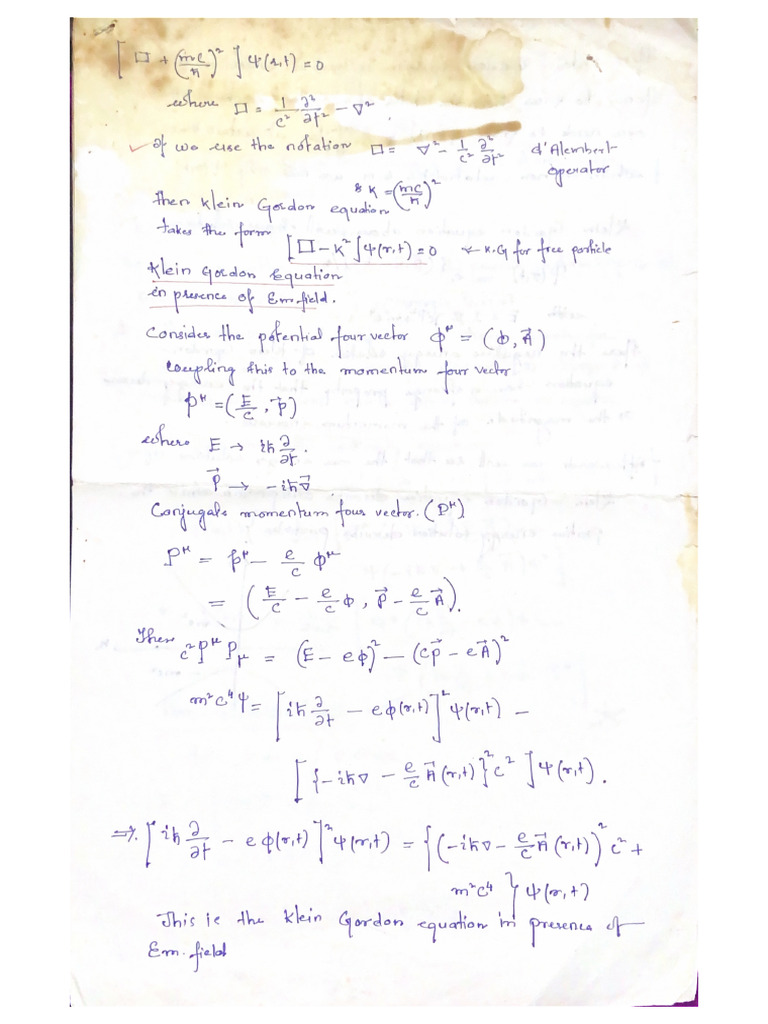 [□ + (mc/ħ)²] ψ(r,t) = 0
where □ = 1/c² ∂²/∂t² − ∇²
If we use the notation □ = ∇² − 1/c² ∂²/∂t² d'Alembert-
operator
& K = (mc/ħ)²
then Klein Gordon equation
takes the form [□ − K²] ψ(r,t) = 0 ← K.G for free particle
Klein Gordon Equation
in presence of Em.field.
Consider the potential four vector ϕ^μ = (ϕ, A⃗)
coupling this to the momentum four vector
p^μ = (E/c, p⃗)
where E → iħ ∂/∂t.
p⃗ → −iħ∇⃗
Conjugate momentum four vector. (P^μ)
P^μ = p^μ − e/c ϕ^μ
= (E/c − e/c ϕ, p⃗ − e/c A⃗).
Then c² P^μ P_μ = (E − eϕ)² − (cp⃗ − eA⃗)²
m²c⁴ψ = [iħ ∂/∂t − eϕ(r,t)]² ψ(r,t) −
[{−iħ∇ − e/c A⃗(r,t)}² c²] ψ(r,t).
⇒ [iħ ∂/∂t − eϕ(r,t)]² ψ(r,t) = {(−iħ∇ − e/c A⃗(r,t))² c² +
m²c⁴} ψ(r,t)
This is the Klein Gordon equation in presence of
Em.field